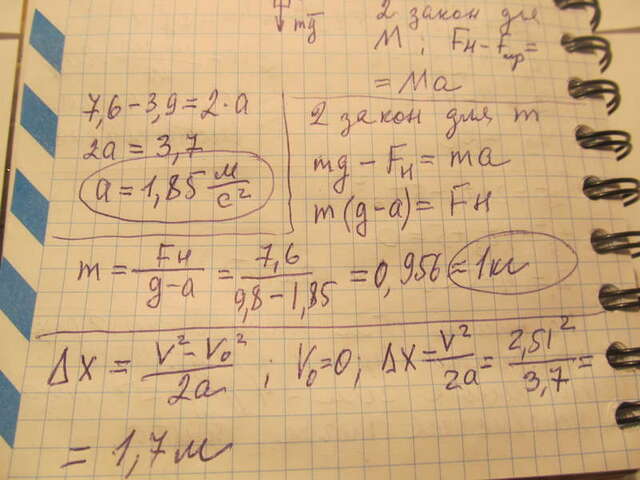 mg
2 закон для
M; Fн - Fтр =
= Ma
7,6 - 3,9 = 2 · a
2a = 3,7
a = 1,85 м/с²
2 закон для m
mg - Fн = ma
m(g-a) = Fн
m = Fн/(g-a) = 7,6/(9,8-1,85) = 0,956 = 1кг
Δx = (V² - V₀²)/2a ; V₀=0; Δx = V²/2a = 2,51²/3,7 =
= 1,7м